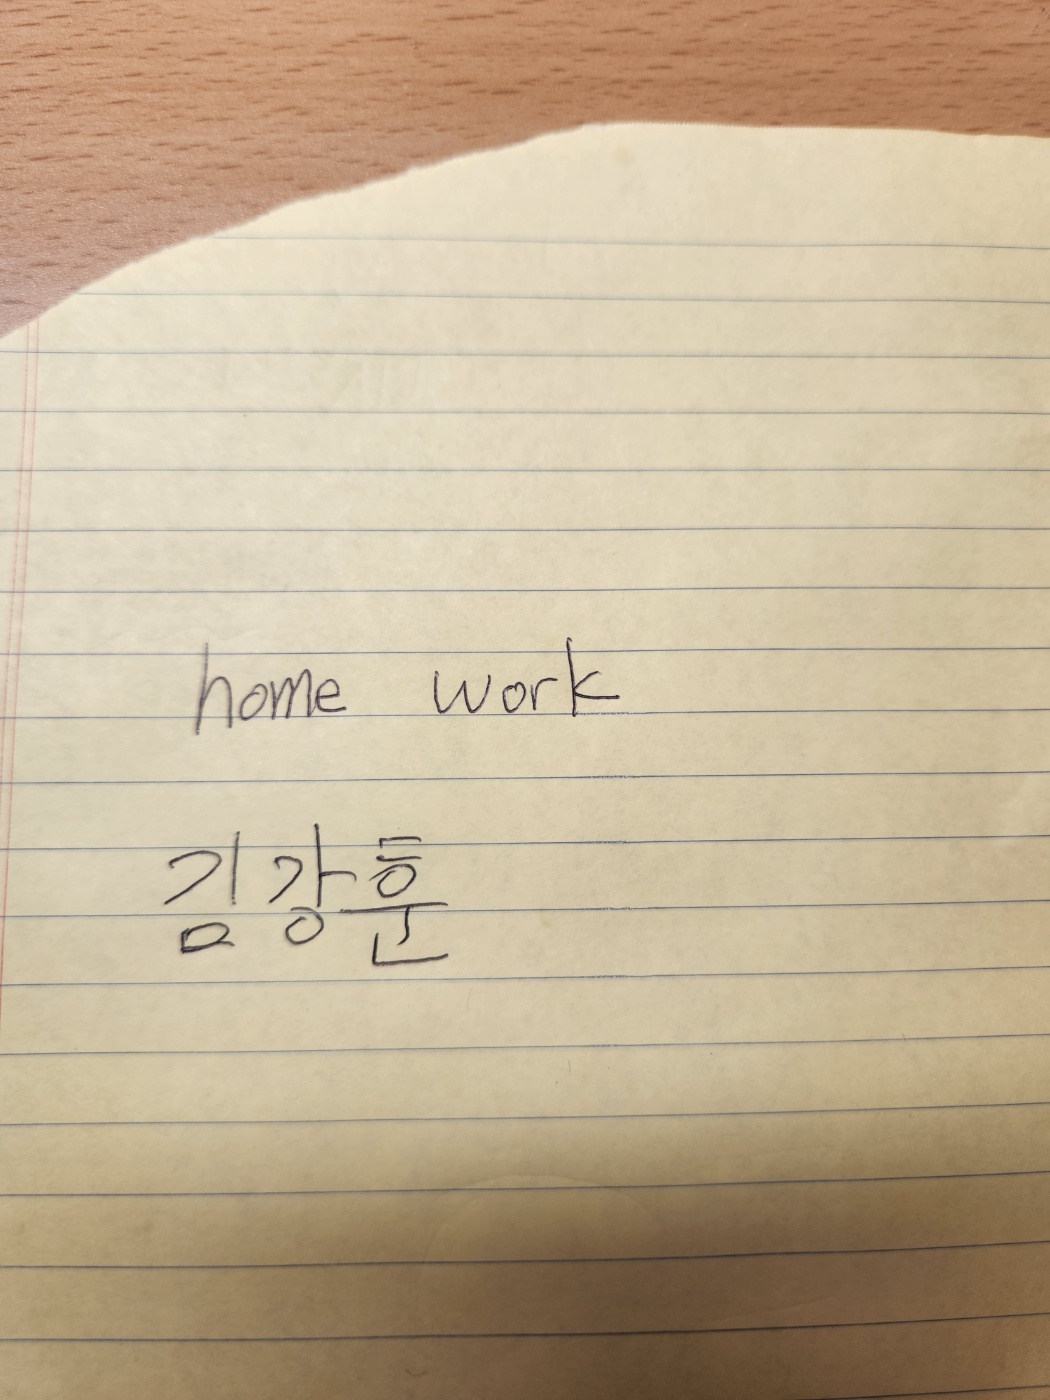 home work
김강훈